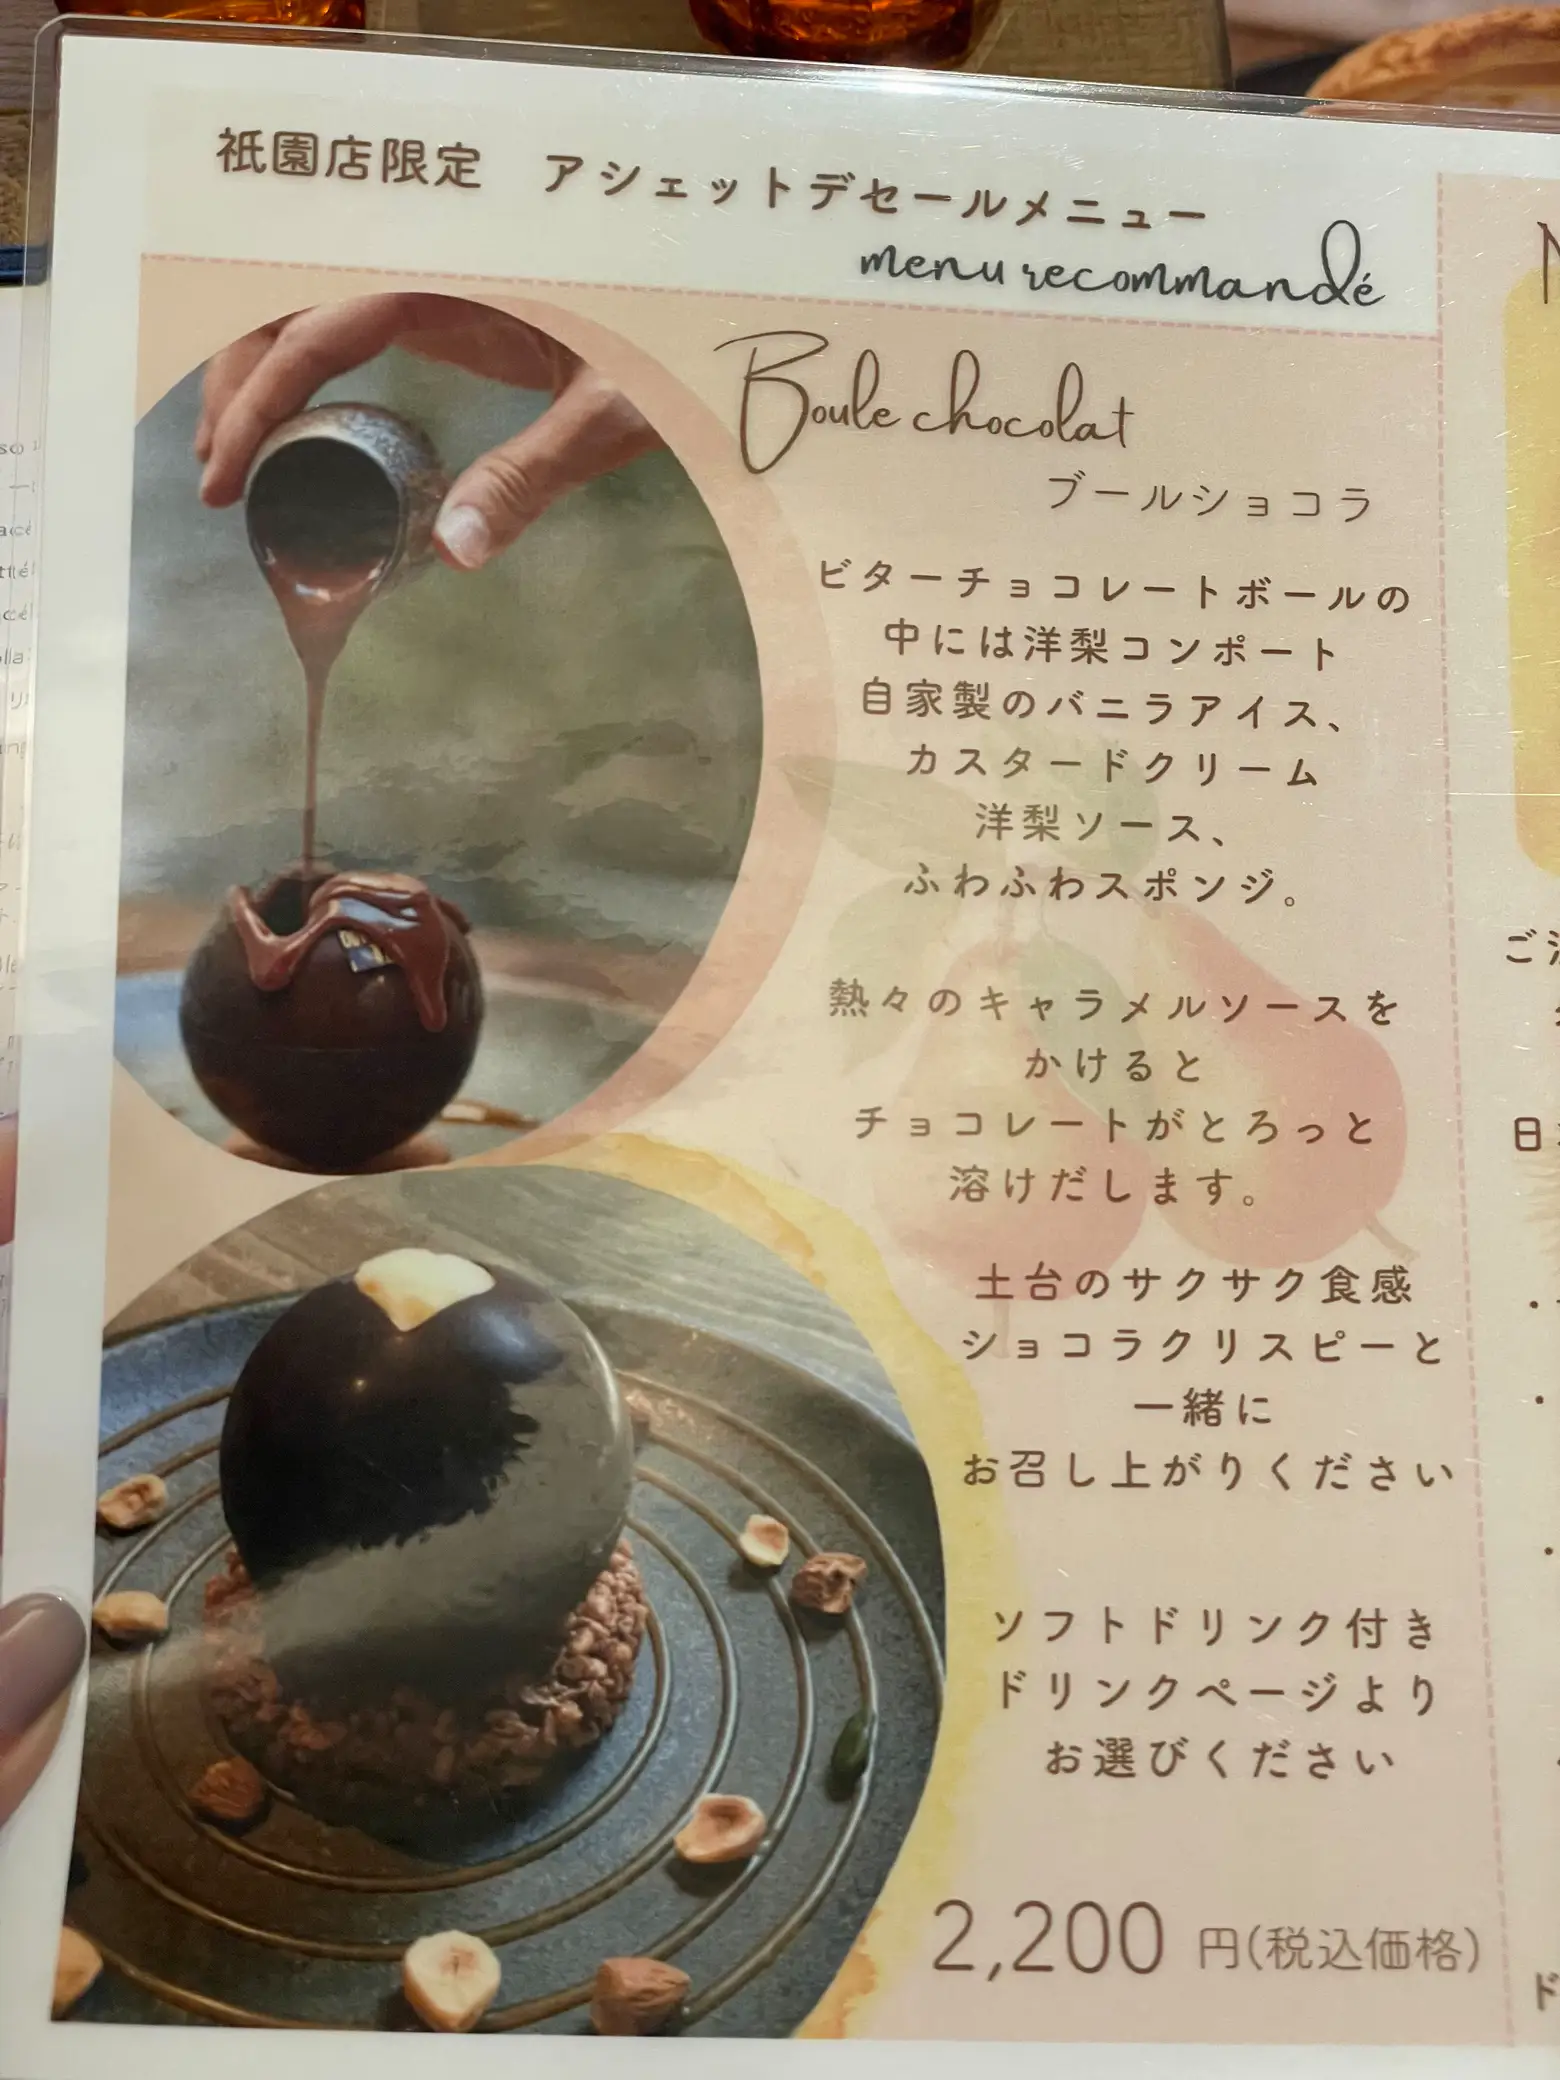 祇園店限定　アシェットデセールメニュー
menu recommandé
Boule chocolat
ブールショコラ
ビターチョコレートボールの
中には洋梨コンポート
自家製のバニラアイス、
カスタードクリーム
洋梨ソース、
ふわふわスポンジ。
熱々のキャラメルソースを
かけると
チョコレートがとろっと
溶けだします。
土台のサクサク食感
ショコラクリスピーと
一緒に
お召し上がりください
ソフトドリンク付き
ドリンクページより
お選びください
2,200 円(税込価格)